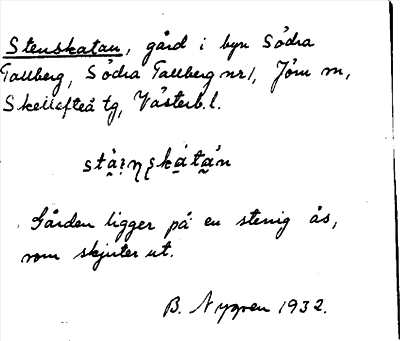 Stenskatan, gård i byn Södra
Tallberg, Södra Tallberg nr 1, Jörn sn,
Skellefteå tg, Västerb. l.
Gården ligger på en stenig ås,
som skjuter ut.
B. Nygren 1932.